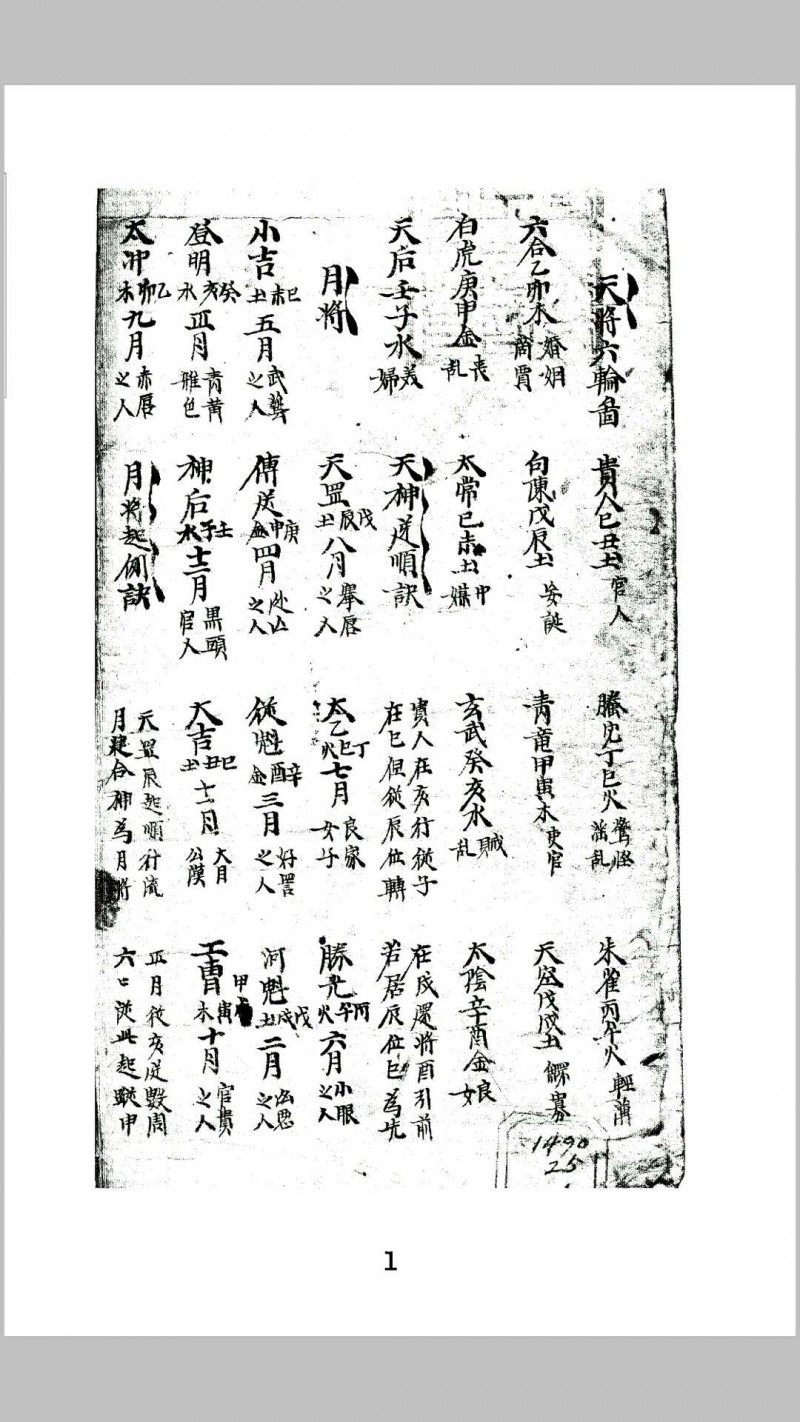 天將六輪啚 貴人己丑土 官人 螣蛇丁巳火 驚怪 淫乱 朱雀丙午火 輕薄
六合乙卯木 婚姻 商賈 勾陳戊辰土 妄誕 青竜甲寅木 吏官 天空戊戌土 鰥寡
白虎庚申金 喪乱 太常己未土 中媒 玄武癸亥水 賊乱 太陰辛酉金
天后壬子水 美婦 天神逆順訣 貴人在亥行從子 在巳但從辰位轉 在戌還將酉引前 若居辰位巳為先
月將 天罡 戊辰土 八月 舉唇之人 太乙 丁巳火 七月 良家女子 勝光 丙午火 六月 小眼之人
小吉 己未土 五月 武藝之人 傳送 庚申金 四月 之人 從魁 辛酉金 三月 好詈之人 河魁 戊戌土 二月 凶恶之人
登明 癸亥水 正月 青黄雅色 神后 壬子水 十二月 黒頭官人 大吉 己丑土 十一月 大月公 工曹 甲寅木 十月 官貴之人
太冲 乙卯木 九月 赤唇之人 月將起例訣 天罡辰起順行流 月建合神為月將 正月從亥逆數周 六 從此起蹤申
1490
25
1